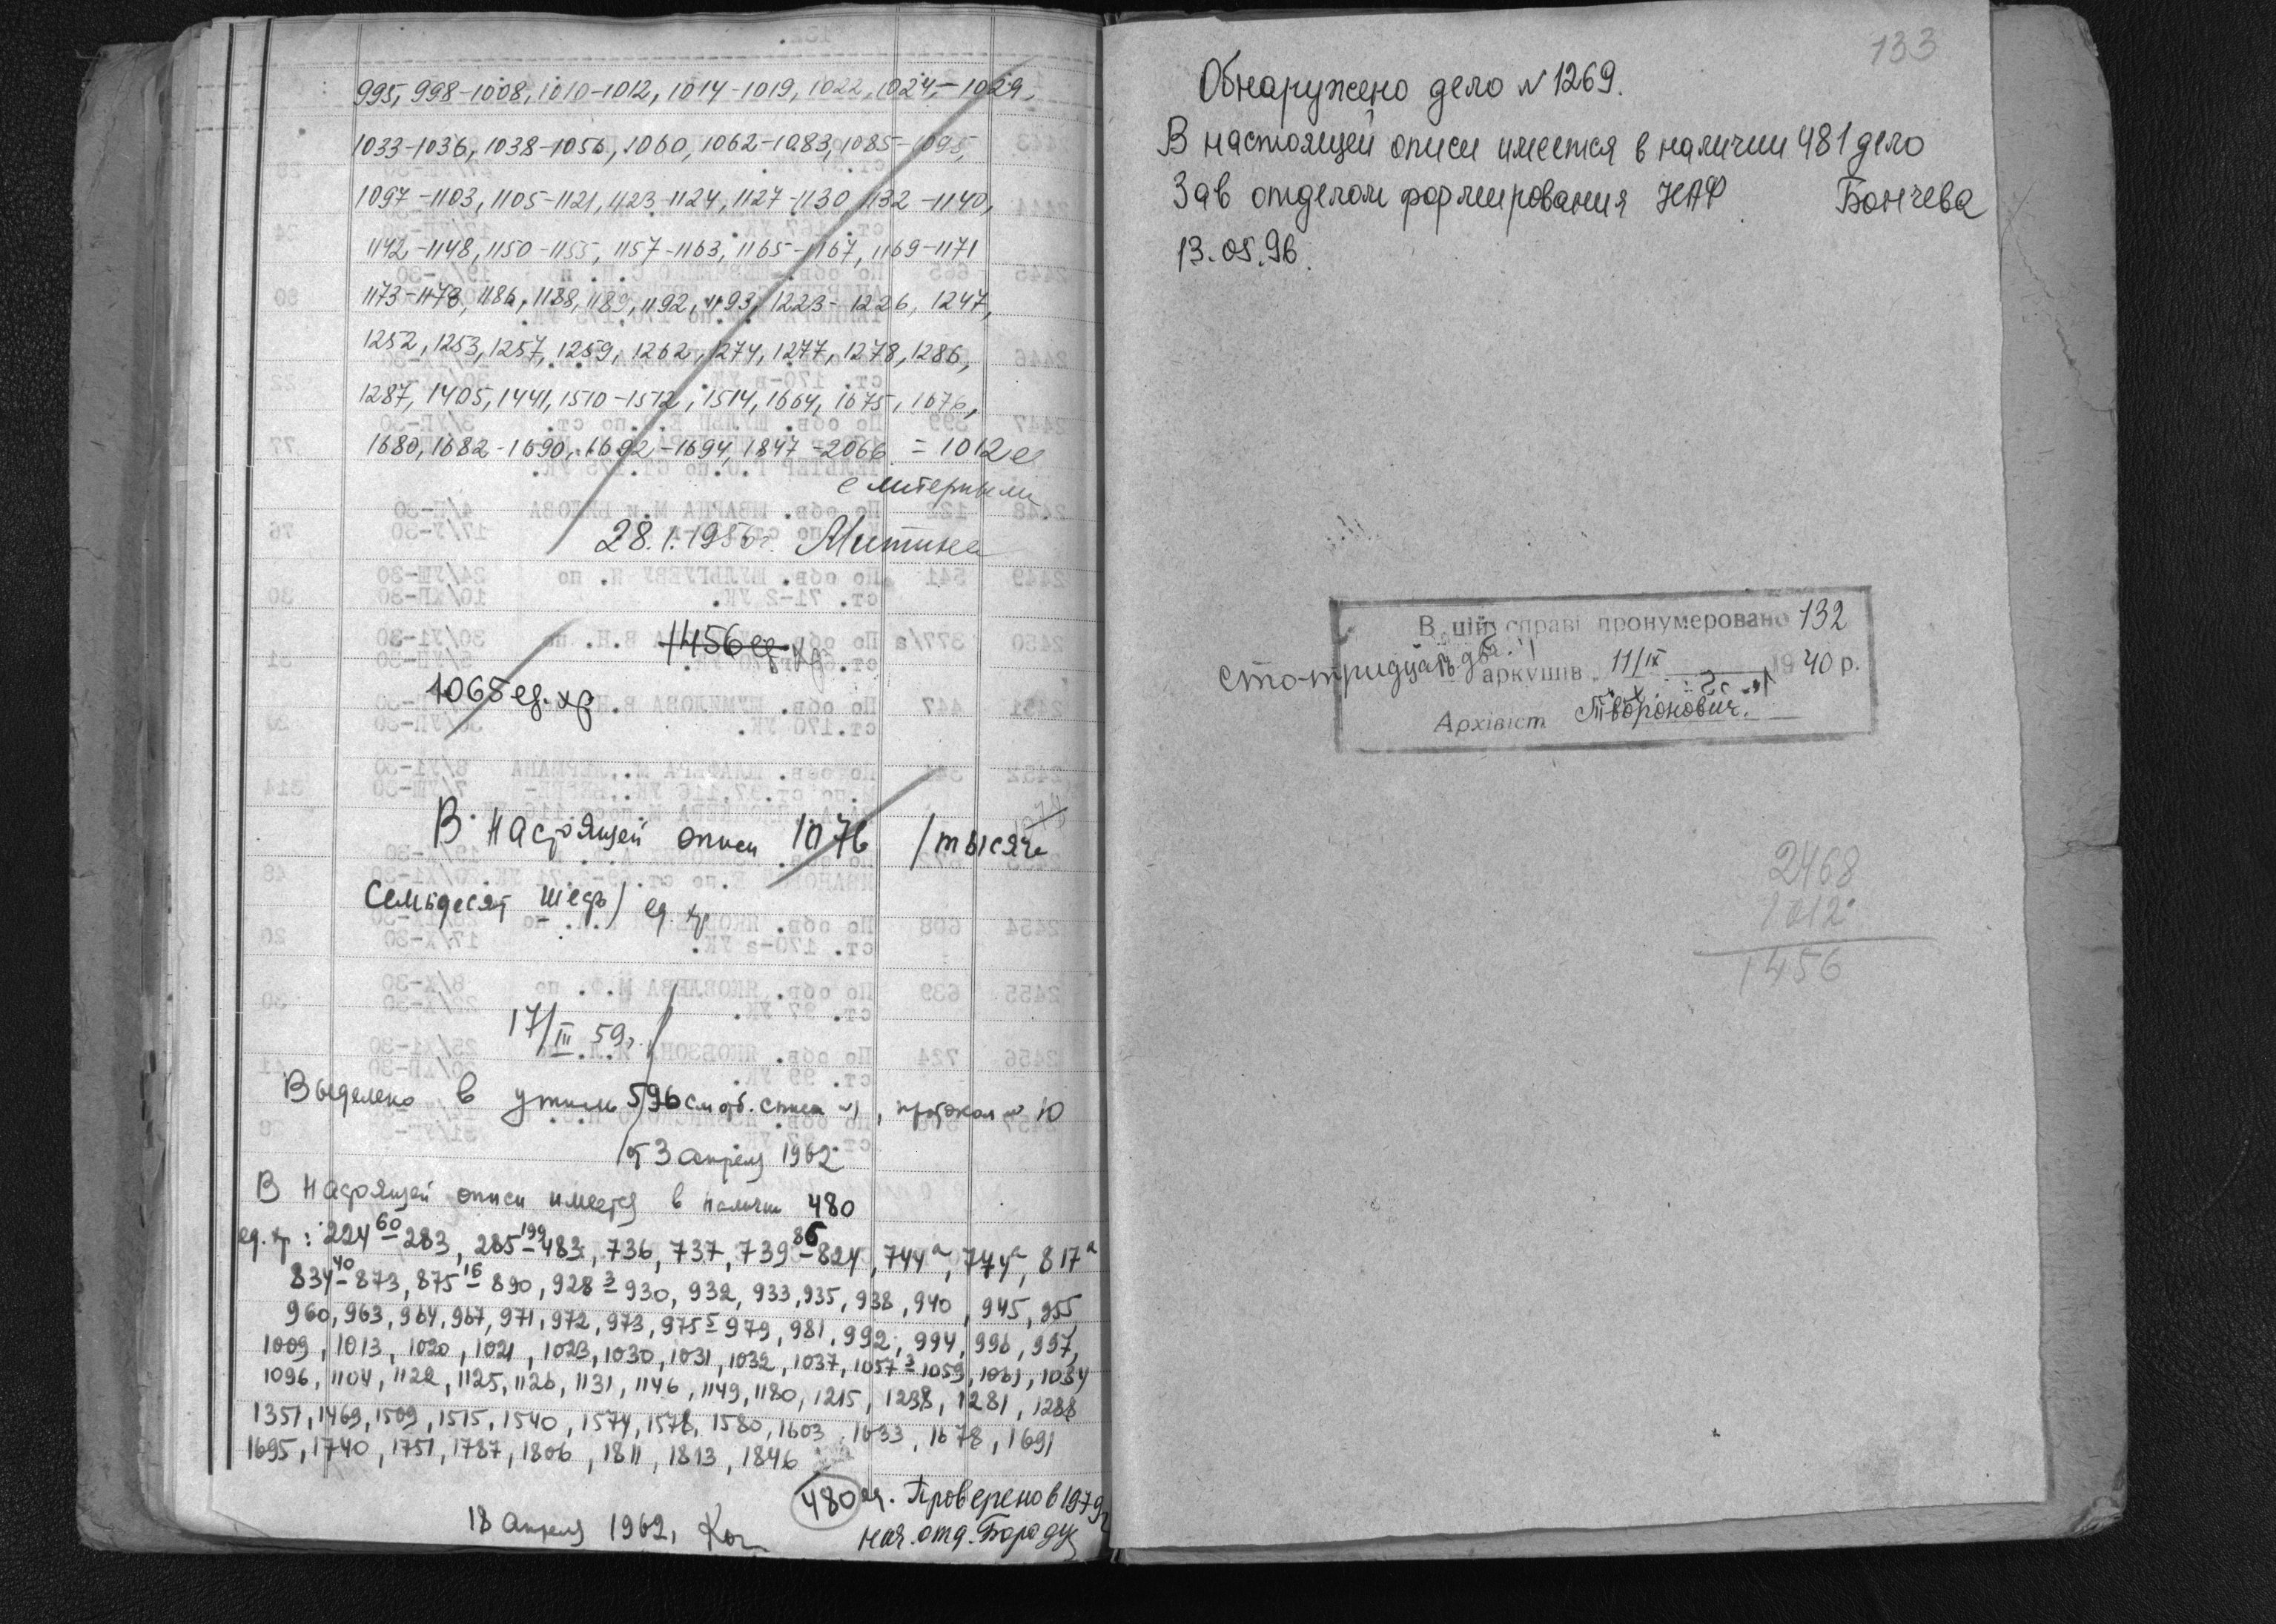 995, 998-1008, 1010-1012, 1014-1019, 1022, 1024-1029,
1033-1036, 1038-1056, 1060, 1062-1083, 1085-1095,
1097-1103, 1105-1121, 1123-1124, 1127-1130, 1132-1140,
1142-1148, 1150-1155, 1157-1163, 1165-1167, 1169-1171
1173-1178, 1186, 1188, 1189, 1192, 1193, 1223-1226, 1247,
1252, 1253, 1257, 1259, 1262, 1274, 1277, 1278, 1286,
1287, 1405, 1441, 1510-1512, 1514, 1664, 1675, 1676,
1680, 1682-1690, 1692-1694, 1847-2066 = 1012 е
с литерными
28.1.1956г. Митина
1456 ед
1065 ед. хр
В настоящей описи 1076 /тысяча
семьдесят шесть/ ед. хр
17/III 59г.
Выделено в утиль 596 см отб. списки №1, протокол № 10
от 3 апреля 1962
В настоящей описи имеется в наличии 480
ед. хр: 224 60 - 283, 285 199 - 483, 736, 737, 739 86 - 824, 744а, 774а, 817а
834 40 - 873, 875 16 - 890, 928 3 - 930, 932, 933, 935, 938, 940, 945, 955
960, 963, 964, 967, 971, 972, 973, 975 5 - 979, 981, 992, 994, 996, 997,
1009, 1013, 1020, 1021, 1023, 1030, 1031, 1032, 1037, 1057 3 - 1059, 1061, 1084
1096, 1104, 1122, 1125, 1126, 1131, 1146, 1149, 1180, 1215, 1238, 1281, 1288
1351, 1469, 1509, 1515, 1540, 1574, 1578, 1580, 1603, 1633, 1678, 1691
1695, 1740, 1751, 1787, 1806, 1811, 1813, 1846
480 ед. Проверено в 1979г
18 апреля 1962,
нач. отд.
133
Обнаружено дело №1269.
В настоящей описи имеется в наличии 481 дело
Зав отделом формирования НАФ Бончева
13.05.96.
В цій справі пронумеровано 132
сто-тридцать два аркушів 11/IX 1940 р.
Архівіст Творонович.
2468
1012
1456